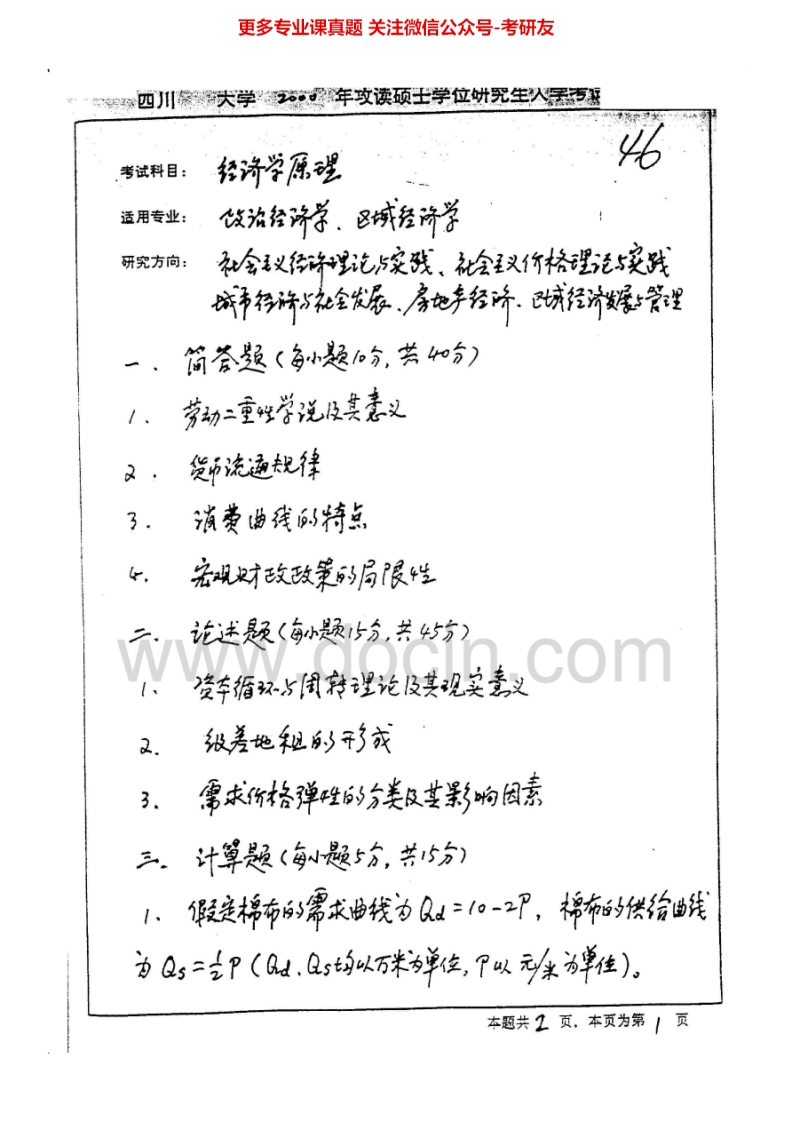 更多专业课真题 关注微信公众号-考研友
四川 大学 2000 年攻读硕士学位研究生入学考
46
考试科目: 经济学原理
适用专业: 政治经济学、区域经济学
研究方向: 社会主义经济理论与实践、社会主义价格理论与实践
城市经济与社会发展、房地产经济、区域经济发展与管理
一、简答题(每小题10分,共40分)
1. 劳动二重性学说及其意义
2. 货币流通规律
3. 消费曲线的特点
4. 宏观财政政策的局限性
二、论述题(每小题15分,共45分)
www.docin.com
1. 资本循环与周转理论及其现实意义
2. 级差地租的形成
3. 需求价格弹性的分类及其影响因素
三、计算题(每小题5分,共15分)
1. 假定棉布的需求曲线为Qd=10-2P,棉布的供给曲线
为Qs=½P(Qd、Qs均以万米为单位,P以元/米为单位)。
本题共 2 页,本页为第 1 页